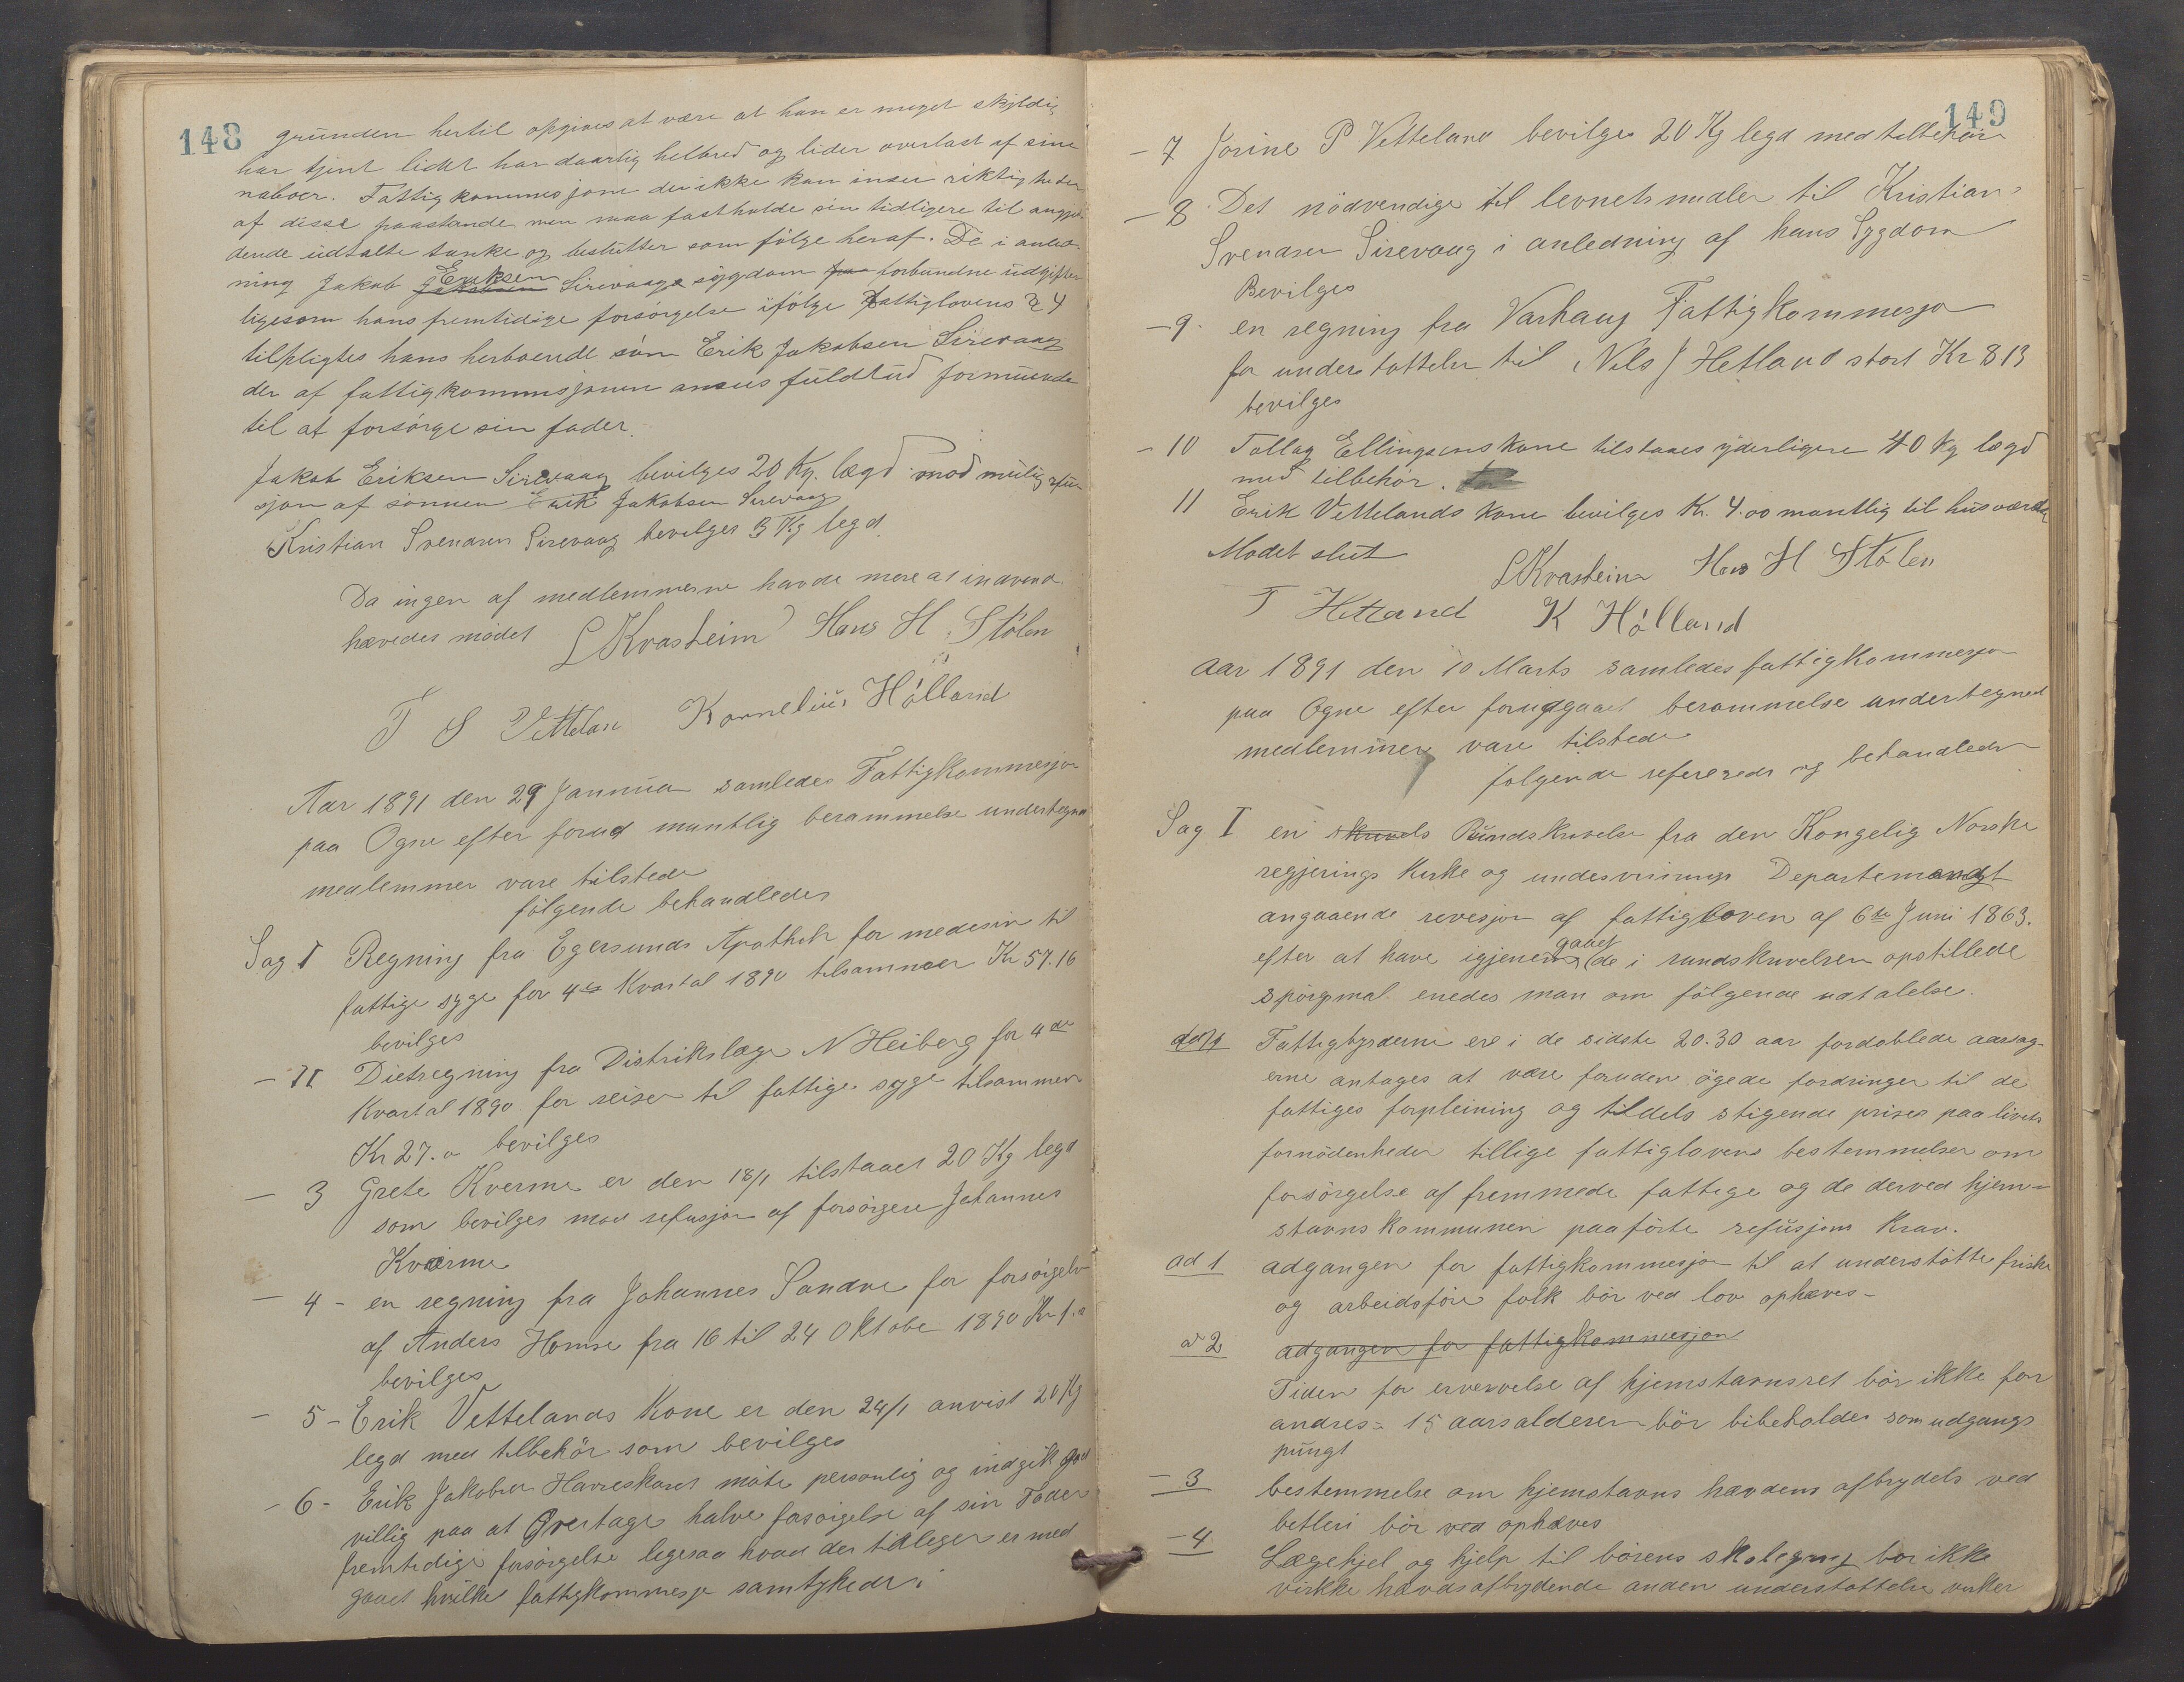 148
grunden hertil opgives at være at han er meget skyldig
har tjent lidet har daarlig helbred og lider overlast af sine
naboer. Fattigkommisjonen der ikke kan indsee riktigheden
af disse paastande men maa fastholde sin tidligere til angjæl-
dende udtalte tanke og beslutter som følge heraf. De i anled-
ning Jakob Jakobsen Eriksen Sirevaags sygdom forbundne udgifter
ligesom hans fremtidige forsørgelse ifølge Fattiglovens § 4
tilpligtes hans herboende søn Erik Jakobsen Sirevaag
der af fattigkommisjonen ansees fuldtud formuende
til at forsørge sin fader.
Jakob Eriksen Sirevaag bevilges 20 Kg. lægd mod mulig refu-
sjon af sønnen Erik Jakobsen Sirevaag
Kristian Svendsen Sirevaag bevilges 3 Kg legd.
Da ingen af medlemmerne havde mere at indvend
hævedes mødet L Kvasheim Hans H. Stölen
T S Vettelan Kornelius Hölland
Aar 1891 den 29 Januua samledes Fattigkommesjon
paa Ogne efter forud muntlig berammelse undertegne
medlemmer vare tilstede
følgende behandledes
Sag I Regning fra Egersunds Apothek for medesin til
fattige syge for 4de Kvartal 1890 tilsammen Kr 57.16
bevilges
— II Dietregning fra Distrikslæge N Heiberg for 4de
Kvartal 1890 for reiser til fattige syge tilsammen
Kr 27.00 bevilges
— 3 Grete Kverme er den 18/1 tilstaaet 20 Kg legd
som bevilges mod refusjon af forsørgere Johannes
Kværme
— 4 - en regning fra Johannes Sandve for forsørgelse
af Anders Homse fra 16 til 24 Oktober 1890 Kr
bevilges
— 5 - Erik Vettelands Kone er den 24/1 anvist 20 Kg
legd med tilbehör som bevilges
- 6 - Erik Jakobsen Harreskaret møte personlig og indgik god
villig paa at Overtage halve forsørgelse af sin Fader
fremtidige forsørgelse legesaa hvad der tidleger er med
gaaet hvilke fattigkommesjo samtykedes
149
— 7 Jorine P Vetteland bevilges 20 Kg legd med tilbehør
— 8 Det nödvendige til levnetsmidler til Kristian
Svendsen Sirevaag i anledning af hans Sygdom
Bevilges
— 9. en regning fra Varhaug Fattigkommesjo
for understøttelse til Nils J Hetland stort Kr 8 13
bevilges
— 10 Tollag Ellingsens kone tilstaaes yderligere 40 Kg lægd
med tilbehör.
11 Erik Vettelands kone bevilges Kr. 4.00 mantlig til husværelse
Mødet slut L Kvasheim Hans H Stölen
T Hetland K Hölland
Aar 1891 den 10 Marts samledes fattigkommesjon
paa Ogne efter forudgaaet berammelse undertegned
medlemmer vare tilstede
følgende refereredes og behandledes
Sag I en skruvels Rundskrivelse fra den Kongelig Norske
regjerings Kirke og undervisnings Departemendgt
angaaende revesjon af fattigloven af 6te Juni 1863.
efter at have igjenem gaaet de i rundskrivelsen opstillede
spörgsmal enedes man om fölgende udtalelse.
Fattigbyrderne ere i de sidste 20-30 aar fordoblede aarsag-
erne antages at være foruden øgede fordringer til de
fattiges forpleining og tildels stigende priser paa livets
fornödenheder tillige fattiglovens bestemmelser om
forsörgelse af fremmede fattige og de derved hjem-
stavnskommunen paaförte refusjons krav.
ad 1 adgangen for fattigkommesjon til at understötte friske
og arbeidsföre folk bör ved lov ophæves-
ad 2 adgangen for fattigkommesjon
Tiden for ervervelse af hjemstavnsret bör ikke for
andres - 15 aarsalderen bör bibeholdes som udgangs
pungt
— 3 bestemmelse om hjemstavns hævdens afbrydels ved
betleri bör ved ophæves
— 4 Lægehjel og hjelp til börens skolegang bør ikke
virkke hævdsafbrydende anden understøttelse virker